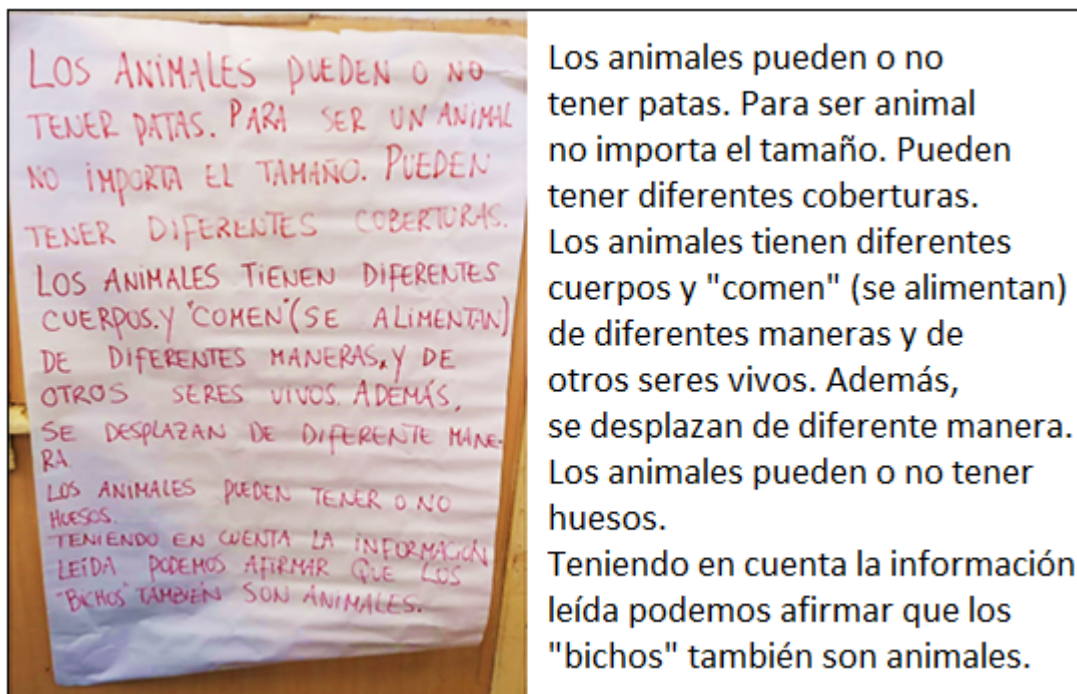 LOS ANIMALES PUEDEN O NO
TENER PATAS. PARA SER UN ANIMAL
NO IMPORTA EL TAMAÑO. PUEDEN
TENER DIFERENTES COBERTURAS.
LOS ANIMALES TIENEN DIFERENTES
CUERPOS.Y "COMEN" (SE ALIMENTAN)
DE DIFERENTES MANERAS, Y DE
OTROS SERES VIVOS. ADEMÁS,
SE DESPLAZAN DE DIFERENTE MANE-
RA.
LOS ANIMALES PUEDEN TENER O NO
HUESOS.
TENIENDO EN CUENTA LA INFORMACIÓN
LEÍDA PODEMOS AFIRMAR QUE LOS
"BICHOS" TAMBIÉN SON ANIMALES.
Los animales pueden o no
tener patas. Para ser animal
no importa el tamaño. Pueden
tener diferentes coberturas.
Los animales tienen diferentes
cuerpos y "comen" (se alimentan)
de diferentes maneras y de
otros seres vivos. Además,
se desplazan de diferente manera.
Los animales pueden o no tener
huesos.
Teniendo en cuenta la información
leída podemos afirmar que los
"bichos" también son animales.